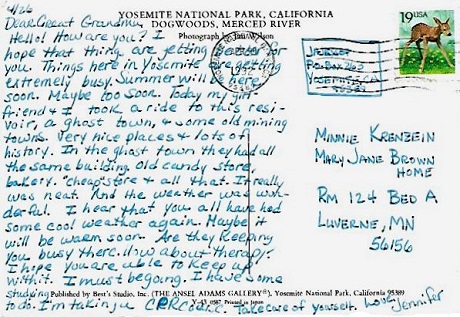 4/26
YOSEMITE NATIONAL PARK, CALIFORNIA
DOGWOODS, MERCED RIVER
Photograph by Jim Wilson
19 USA
1992
Dear Great Grandma,
Hello! How are you? I
hope that thing are getting better for
you. Things here in Yosemite are getting
extremely busy. Summer will be here
soon. Maybe too soon. Today my girl-
friend & I took a ride to this resi-
voir, a ghost town, & some old mining
towns. Very nice places & lots of
history. In the ghost town they had all
the same building old candy store,
bakery, "cheap" store & all that. It really
was neat. And the weather was wonk-
derful. I hear that you all have had
some cool weather again. Maybe it
will be warm soon. Are they keeping
you busy there. How about therapy?
I hope you are able to keep up
with it. I must be going. I have some
studying
to do. I'm taking a CPR course. Take care of yourself. Love, Jennifer
Jennifer
PO Box 263
Yosemite, CA
95389
Minnie Krenzein
Mary Jane Brown
Home
Rm 124 Bed A
Luverne, MN
56156
Published by Best's Studio, Inc. (THE ANSEL ADAMS GALLERY), Yosemite National Park, California 95389
V-43 0587 Printed in Japan